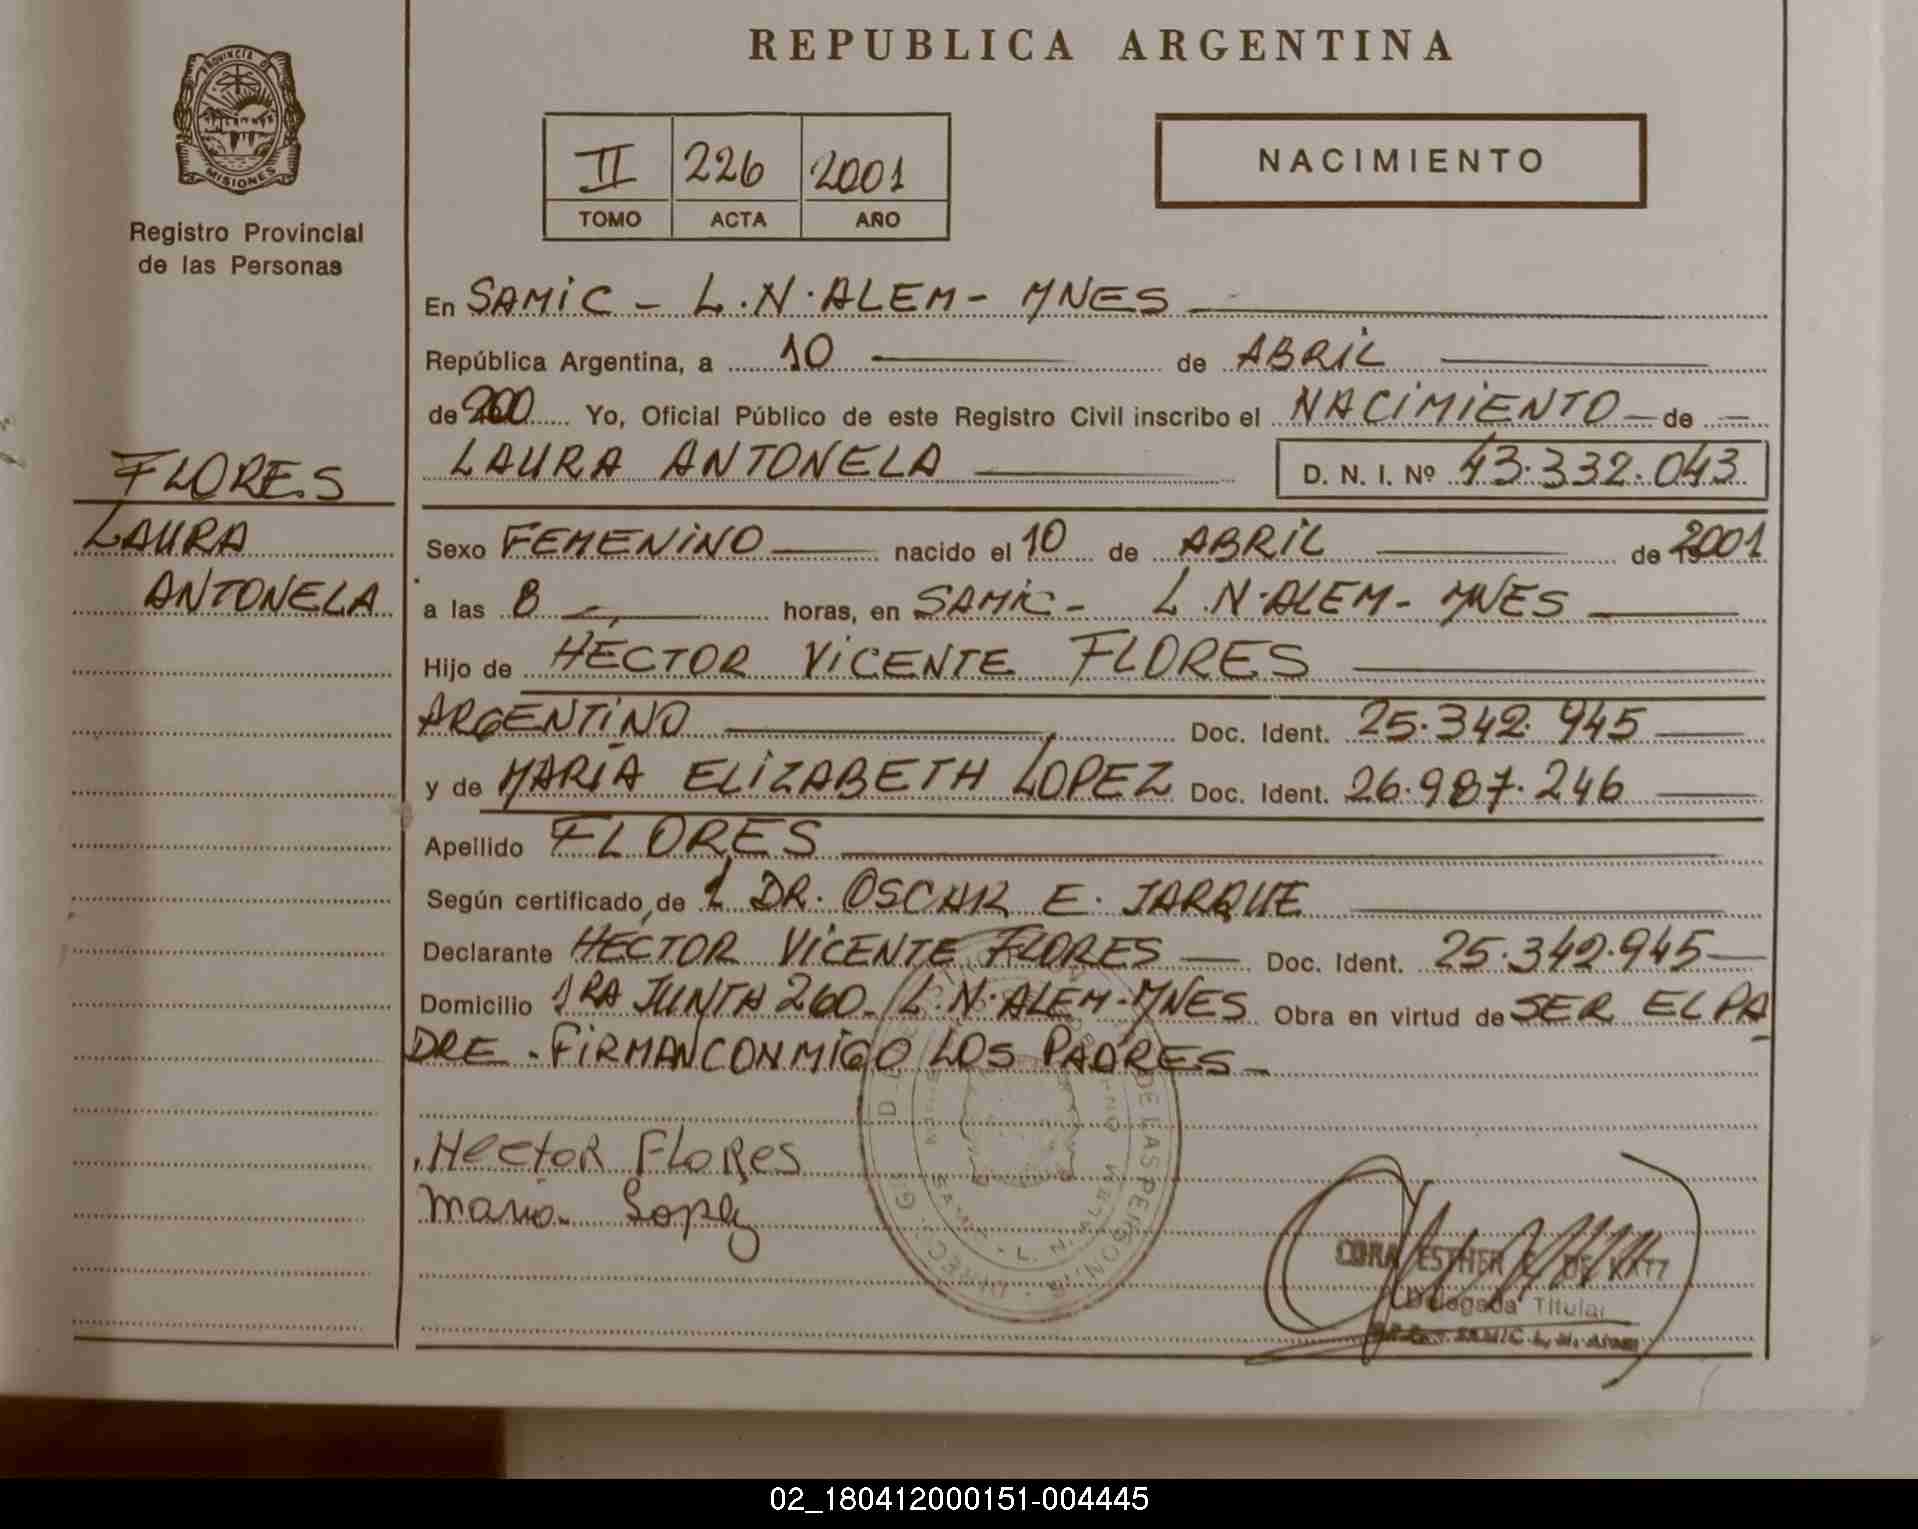 REPUBLICA ARGENTINA
PROVINCIA DE
MISIONES
Registro Provincial
de las Personas
II 226 2001
TOMO ACTA AÑO
NACIMIENTO
En SAMIC - L.N.ALEM - MNES
República Argentina, a 10 de ABRIL
de 200 Yo, Oficial Público de este Registro Civil inscribo el NACIMIENTO de
LAURA ANTONELA D. N. I. Nº 43.332.043
FLORES
LAURA
ANTONELA
Sexo FEMENINO nacido el 10 de ABRIL de 2001
a las 8 horas, en SAMIC - L.N.ALEM - MNES
Hijo de HÉCTOR VICENTE FLORES
ARGENTINO Doc. Ident. 25.342.945
y de MARÍA ELIZABETH LOPEZ Doc. Ident. 26.987.246
Apellido FLORES
Según certificado, de 1 DR. OSCAR E. JARQUE
Declarante HÉCTOR VICENTE FLORES Doc. Ident. 25.342.945
Domicilio 1RA JUNTA 260 - L.N.ALEM - MNES Obra en virtud de SER EL PA
DRE. FIRMAN CONMIGO LOS PADRES
Hector Flores
Maria Lopez
ESTHER DE
Delegada Titular
SAMIC L. N.
DE LAS PERSONAS
02_180412000151-004445